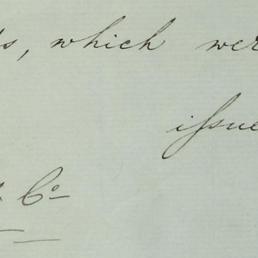 , which wer
issue
Co